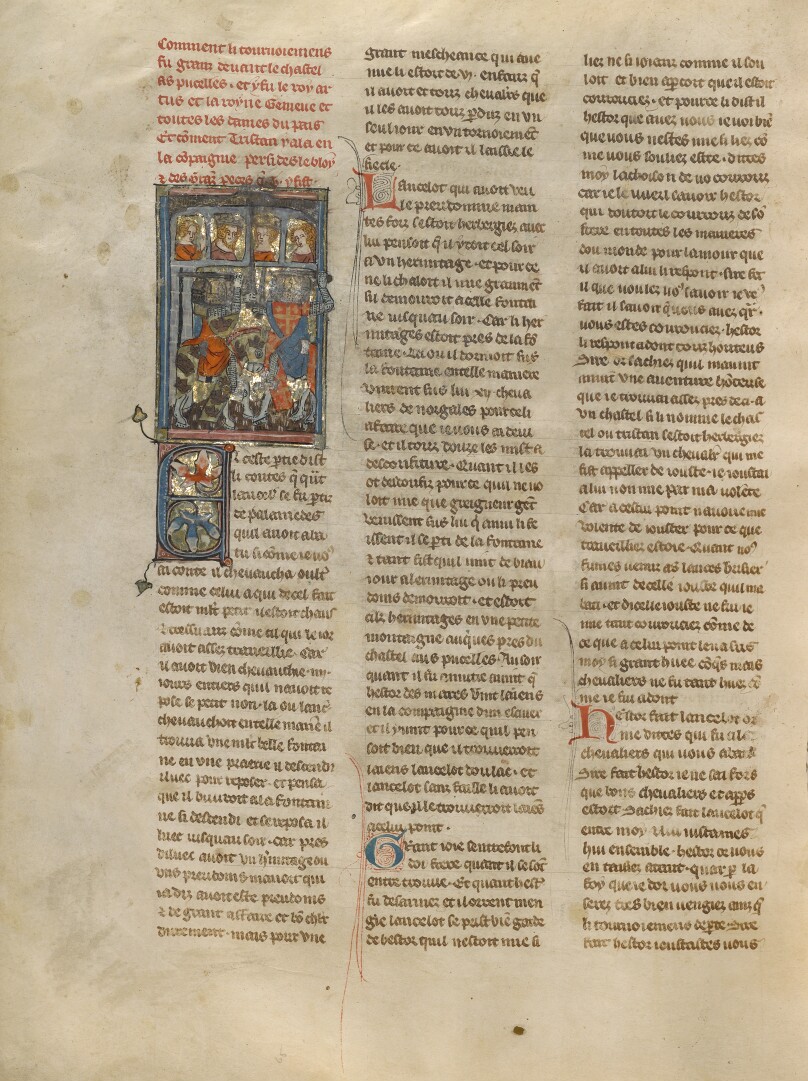 Comment li tournoiemens
fu grans deuant le chastel
as pucelles · et y fu le roy ar
tus et la royne Genieue et
toutes les dames du pais
Et cōment Tristan y ala en
la cōpaignie persides le bloy
⁊ des granz proeces qͥl y fist ·
E
n ceste ptie dist
li contes q̄ qn̄t
lancelꝫ se fu pti
de palamedes
qui auoit aba
tu si cōme ie uoꝰ
ai conte il cheuaucha oultͤ
comme celui a qui de cel fait
estoit mlt petit
auoit asses trauellie · Car
il auoit bien cheuauchie ·iij·
iours entiers quil nauoit re
pose se petit non · la ou lanc̄
cheuauchoit en telle maniē il
trouua vne mlt belle fontai
ne en vne praerie il descendi
iluec pour reposer · et pensa
que il buuroit a la fontaine
ne si descendi et se reposa il
luec iusquau soir · car pres
diluec auoit vn h̄mitage ou
vns preudoms manoit qui
iadis auoit este preudoms
⁊ de grant affaire et bō chlr
durement · mais pour vne
grant mescheance qui aue
nue li estoit de ·vj· enfans q̄
il auoit et tous cheualꝫs que
il les auoit tous pdus en vn
seul iour en vn tornoiemēt
et pour ce auoit il laissie le
siecle ·
Lancelot qui auoit veu
le preudomme main
tes fois sestoit herbergies auec
lui pensoit q̄ il yroit cel soir
a vn hermitage · et pour ce
ne li chaloit il mie graument
sil demouroit a celle fontai
ne iusquau soir · Car li her
mitages estoit pres de la fō
taine · La ou il dormoit sus
la fontaine en telle maniere
vinrent sus lui ·xij· cheua
liers de norgales pour celi
affaire que ie uous ai deui
se · et il touz douze les mist a
desconfiture · Quant il les
ot desconfis pour ce quil ne uo
loit mie que greigneur gēt
venissent sus lui
issent il se pti de la fontaine
⁊ tant fist quil uint de biau
iour a lermitage ou li preu
doms demouroit · et estoit
cilz hermitages en vne petite
montaigne auques pres du
chastel aus pucelles · Au soir
quant il fu anuitie auint q̄
hestor des mares vint laiens
en la compaignie dun escuier
et il y uint pour ce quil pen
soit bien que il trouueroit
laiens lancelot du lac · et
lancelot sans faille li auoit
dit que il le trouueroit laiēs
a celui point ·
Grant ioie sentrefont li
doi frere quant il se sōt
entre trouue · Et quant hestͬ
fu desarmes et il orent men
gie lancelot se prist biē garde
de hestor quil nestoit mie si
lies ne si ioians comme il sou
loit et bien apert que il estoit
courouciez · et pour ce li dist il
hestor que aues uous ie uoi biē
que uous nestes mie si lies cō
me vous soulies estre · dittes
moy lachoison de uo courouz
car ie le vueil sauoir hestor
qui doutoit le courous de sō
frere en toutes les manieres
dou monde pour lamour que
il auoit a lui li respont · sire fet
il que voules uoꝰ sauoir ie ve
fait il sauoir q̄ uous aues qͣr
uous estes couroucies · hestor
li respont adont touz honteus
Sire or sachies quil mauint
anuit vne auenture hōteuse
que ie trouuai asses pres de ci · a
vn chastel si li nomme le chas
tel ou tristan sestoit herbergies
la trouuai vn cheualr qui me
fist appeller de iouste · ie ioustai
a lui non mie par ma volēte
Car a celui point nauoie mie
volente de iouster pour ce que
trauelliez estoie · Quant noꝰ
fumes venus as lances brisier
si auint de celle iouste quil ma
bati · et dicelle iouste ne fui ie
mie tant couroucies cōme de
ce que a celui point len a sus
moy si grant huee cōqs mais
cheualiers ne fu tant huez cō
me ie fui adont
Hestor fait lancelot or
me dittes qui fu cilz
cheualiers qui uous abati
Sire fait hestor ie ne sai fors
que bons cheualiers et apps
estoit Sachies fait lancelot q̄
entre moy ⁊ lui iustames
hui ensemble · hestor or uous
en taisies atant · quar p la
foy que ie doi uous uous en
seres tres bien uengies ains q̄
li tournoiemens depte · Sire
fait hestor ioustastes uous